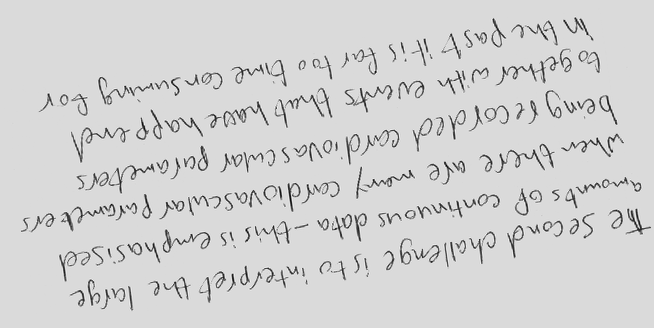 The second challenge is to interpret the large
amounts of continuous data - this is emphasised
when there are many cardiovascular parameters
being recorded cardiovascular parameters
together with events that have happened
in the past it is far too time consuming for